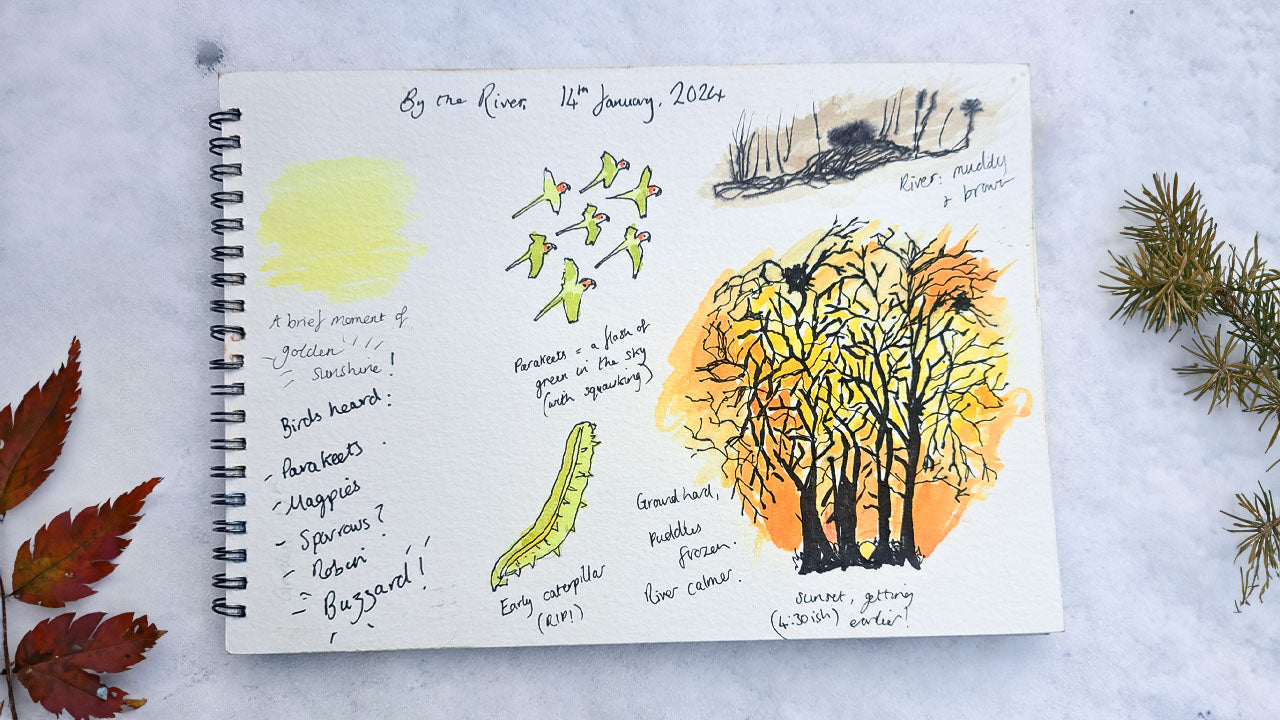 By the River, 14th January, 2024
River: muddy
& brown
A brief moment of
golden
sunshine!
Birds heard:
- Parakeets
- Magpies
- Sparrows?
- Robin
- Buzzard!
Parakeets = a flash of
green in the sky
(with squawking)
Early caterpillar
(RIP!)
Ground hard,
puddles
frozen.
River calmer.
sunset, getting
(4:30ish) earlier!